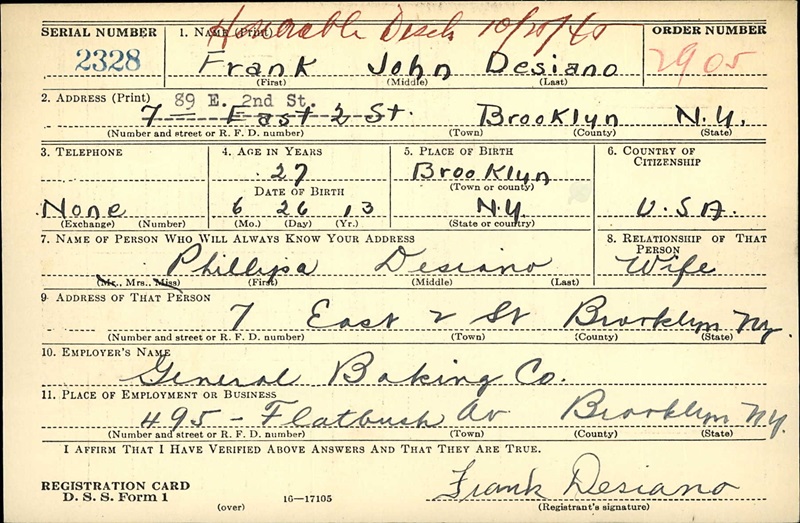 Honorable Disch 10/20/45
SERIAL NUMBER
1. NAME (Print)
ORDER NUMBER
2328
Frank John Desiano
2905
(First) (Middle) (Last)
2. ADDRESS (Print)
89 E. 2nd St.
7 East 2 St. Brooklyn N.Y.
(Number and street or R. F. D. number) (Town) (County) (State)
3. TELEPHONE
4. AGE IN YEARS
5. PLACE OF BIRTH
6. COUNTRY OF CITIZENSHIP
27
Brooklyn
(Town or county)
DATE OF BIRTH
None
6 26 13
N.Y.
U.S.A.
(Exchange) (Number)
(Mo.) (Day) (Yr.)
(State or country)
7. NAME OF PERSON WHO WILL ALWAYS KNOW YOUR ADDRESS
8. RELATIONSHIP OF THAT PERSON
Desiano
Wife
(Mr., Mrs., Miss) (First) (Middle) (Last)
9 ADDRESS OF THAT PERSON
7 East 2 St Brooklyn Ny.
(Number and street or R. F. D. number) (Town) (County) (State)
10. EMPLOYER'S NAME
General Baking Co.
11. PLACE OF EMPLOYMENT OR BUSINESS
495 - Flatbush Av Brooklyn NY.
(Number and street or R. F. D. number) (Town) (County) (State)
I AFFIRM THAT I HAVE VERIFIED ABOVE ANSWERS AND THAT THEY ARE TRUE.
REGISTRATION CARD
D. S. S. Form 1
(over)
16—17105
Frank Desiano
(Registrant's signature)